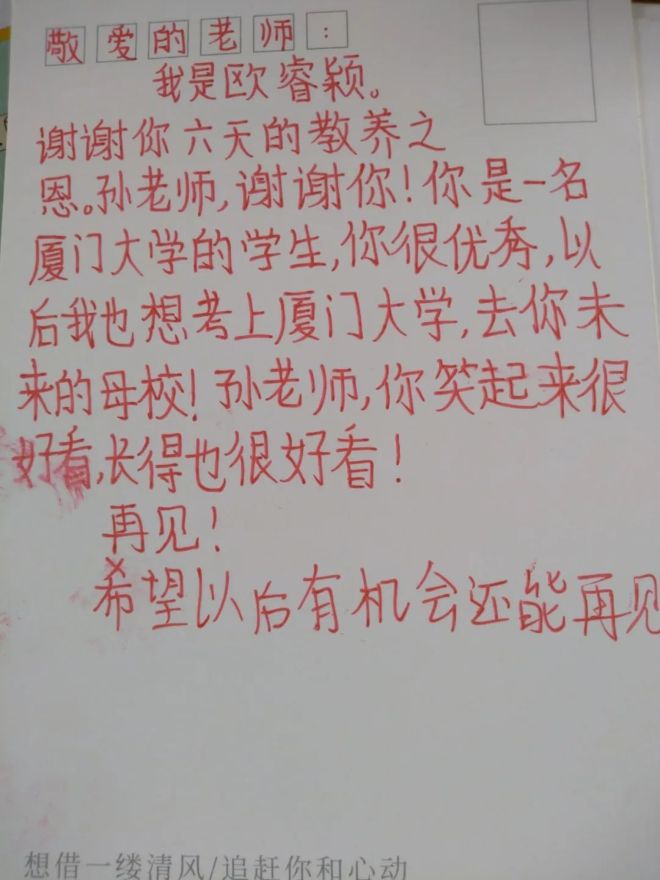 敬爱的老师：
我是欧睿颖。
谢谢你六天的教养之
恩。孙老师,谢谢你!你是一名
厦门大学的学生,你很优秀,以
后我也想考上厦门大学,去你未
来的母校!孙老师,你笑起来很
好看,长得也很好看!
再见!
希望以后有机会还能再见
想借一缕清风/追赶你和心动